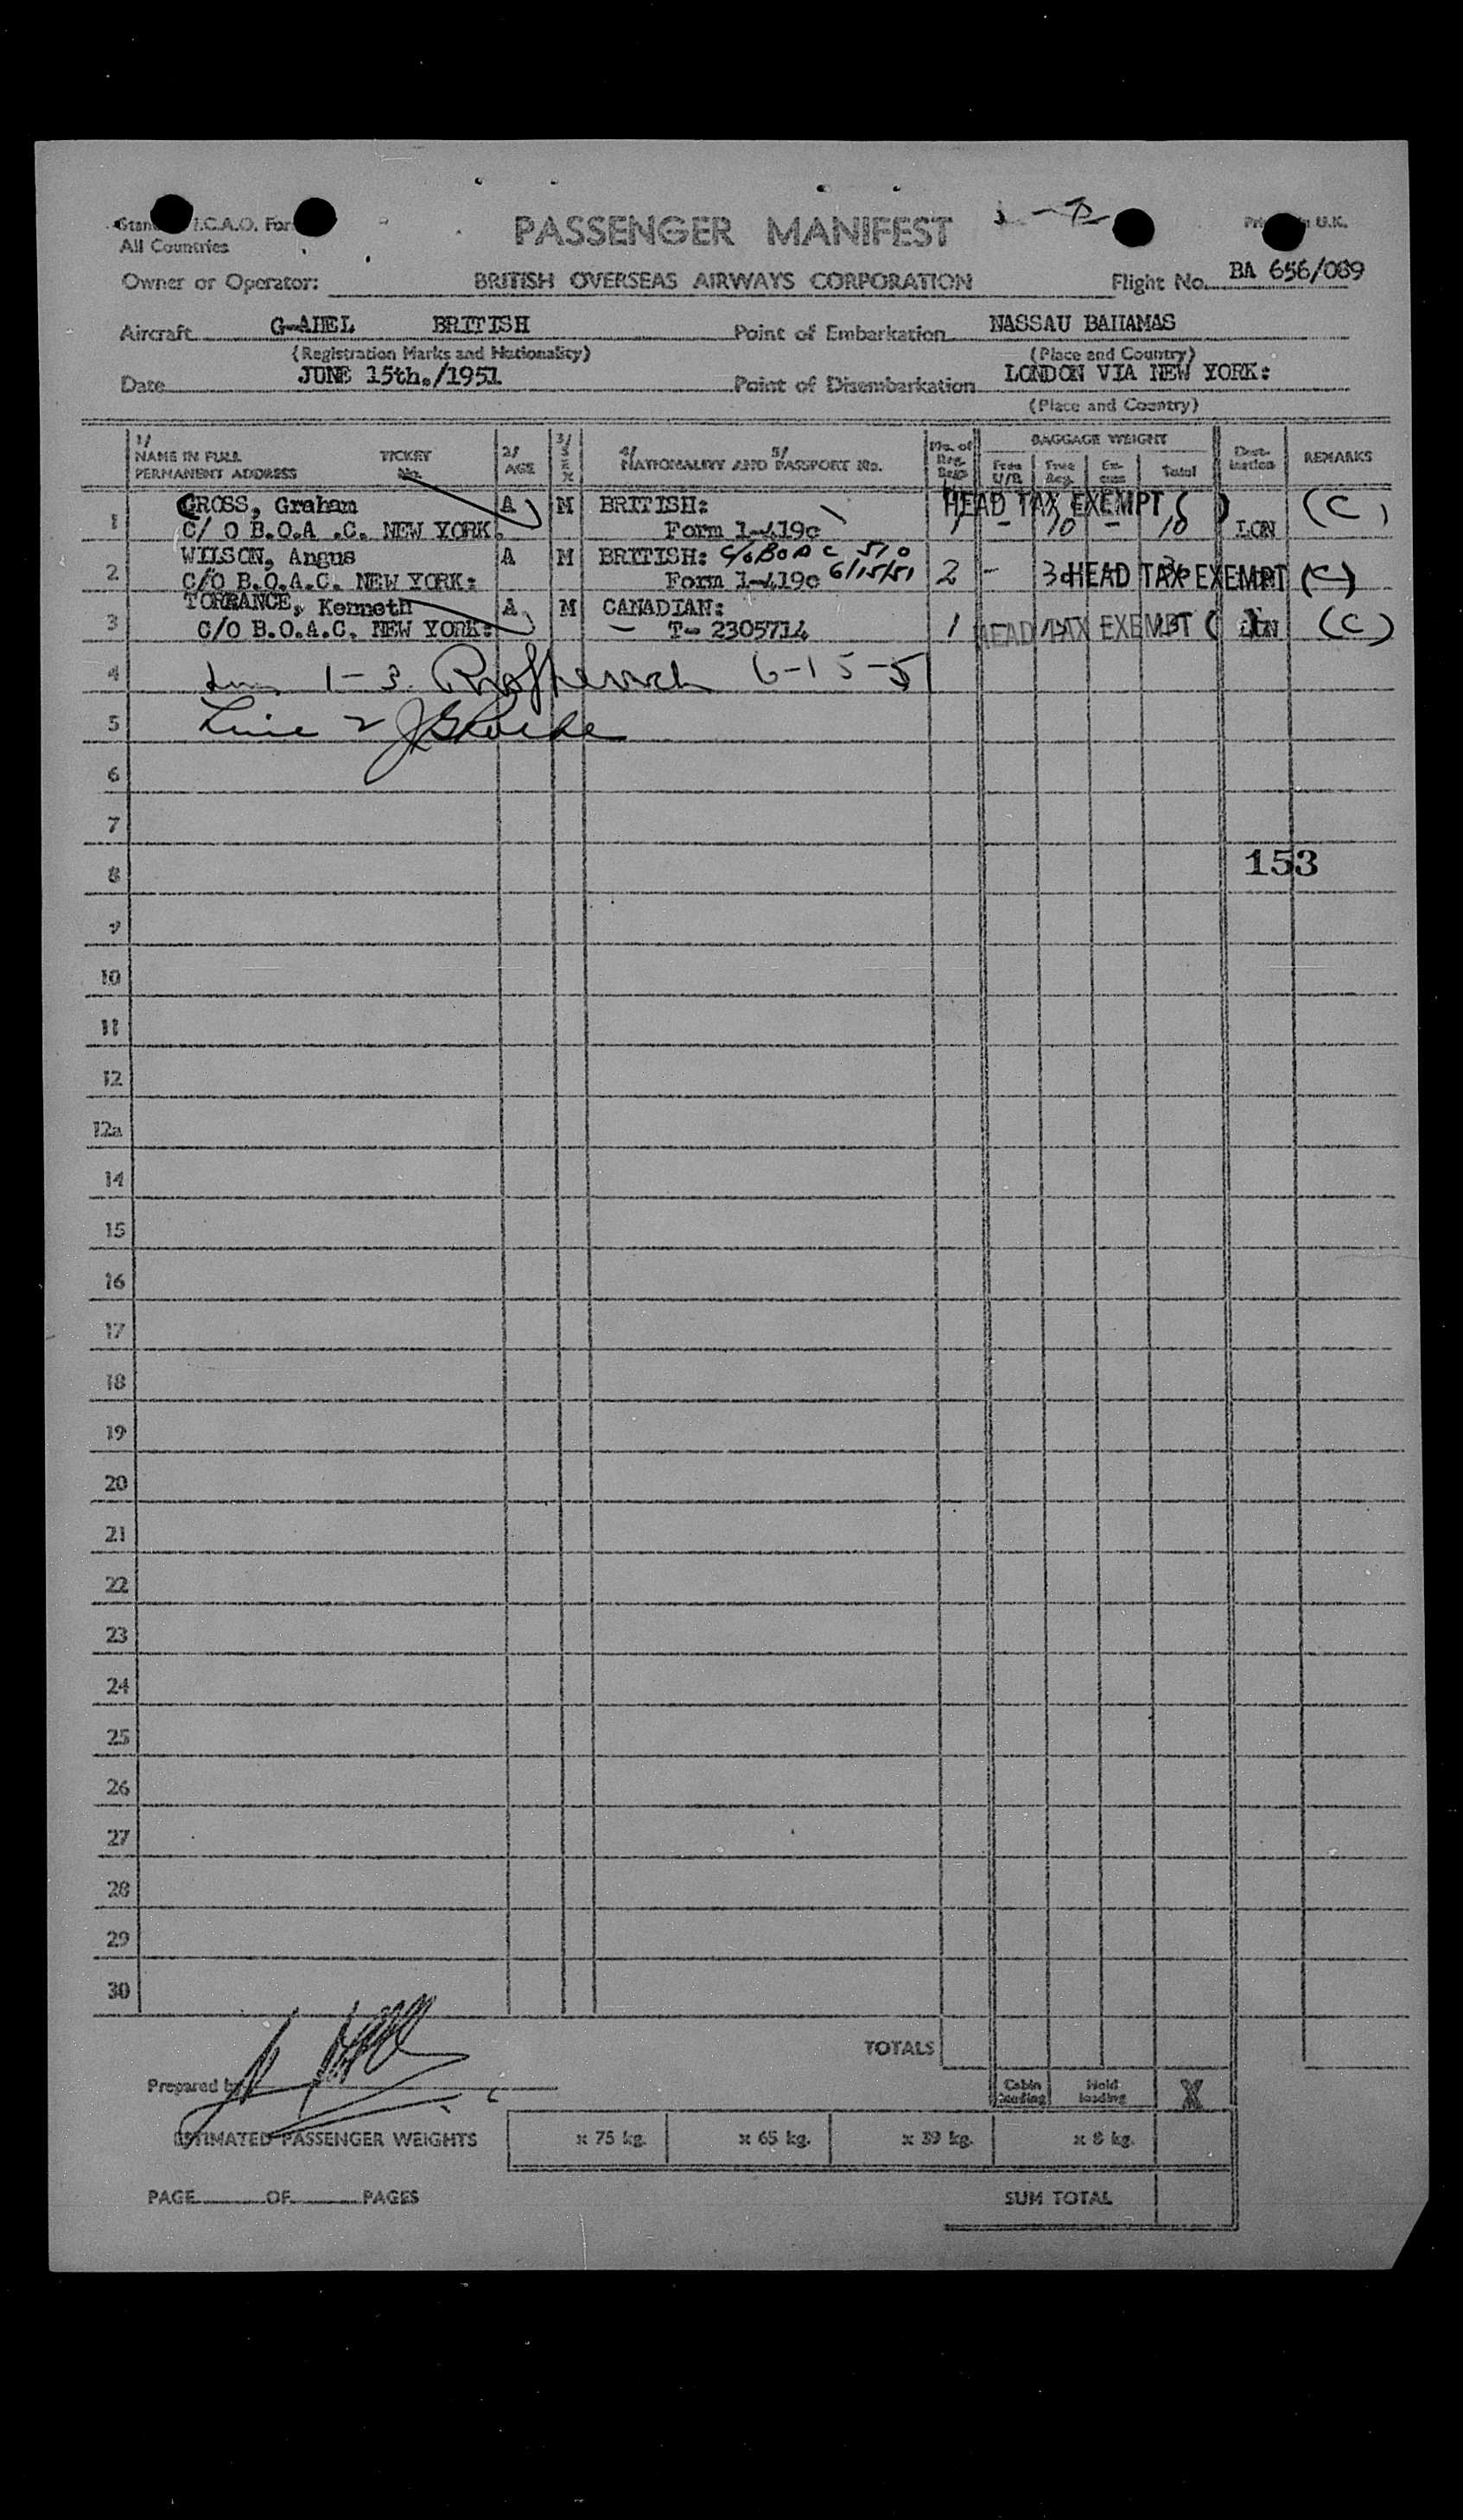 I.C.A.O.
All Countries
PASSENGER MANIFEST
U.K.
Owner or Operator: BRITISH OVERSEAS AIRWAYS CORPORATION Flight No. BA 656/089
Aircraft BRITISH Point of Embarkation NASSAU BAHAMAS
(Registration Marks and Nationality) (Place and Country)
Date JUNE 15th./1951 Point of Disembarkation LONDON VIA NEW YORK:
(Place and Country)
1/ NAME IN FULL PERMANENT ADDRESS TICKET No. 2/ AGE 3/ SEX 4/ 5/ NATIONALITY AND PASSPORT No. No. of Reg. Bags BAGGAGE WEIGHT Free Ex- Total Dest- ination REMARKS
1 GROSS, Graham A M BRITISH: HEAD TAX EXEMPT ( ) (C)
C/ O B.O.A .C. NEW YORK. Form 1-419c 1 - 10 - 10 LON
2 WILSON, Angus A M BRITISH: C/o BOAC 510
C/O B.O.A.C. NEW YORK: Form 1-419c 6/15/51 2 - HEAD TAX EXEMPT (C)
3 TORRANCE, Kenneth A M CANADIAN:
C/O B.O.A.C. NEW YORK: T- 2305714 1 HEAD TAX EXEMPT ( ) LON (C)
4 1-3 6-15-51
5 Line 2
6
7
8 153
9
10
11
12
12a
14
15
16
17
18
19
20
21
22
23
24
25
26
27
28
29
30
TOTALS
Prepared by
Cabin loading Hold loading X
ESTIMATED PASSENGER WEIGHTS x 75 kg. x 65 kg. x 39 kg. x 8 kg.
PAGE OF PAGES SUM TOTAL